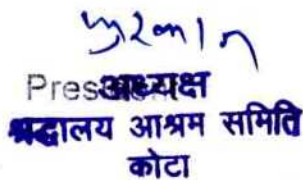 Pres अध्यक्ष
श्रद्धालय आश्रम समिति
कोटा